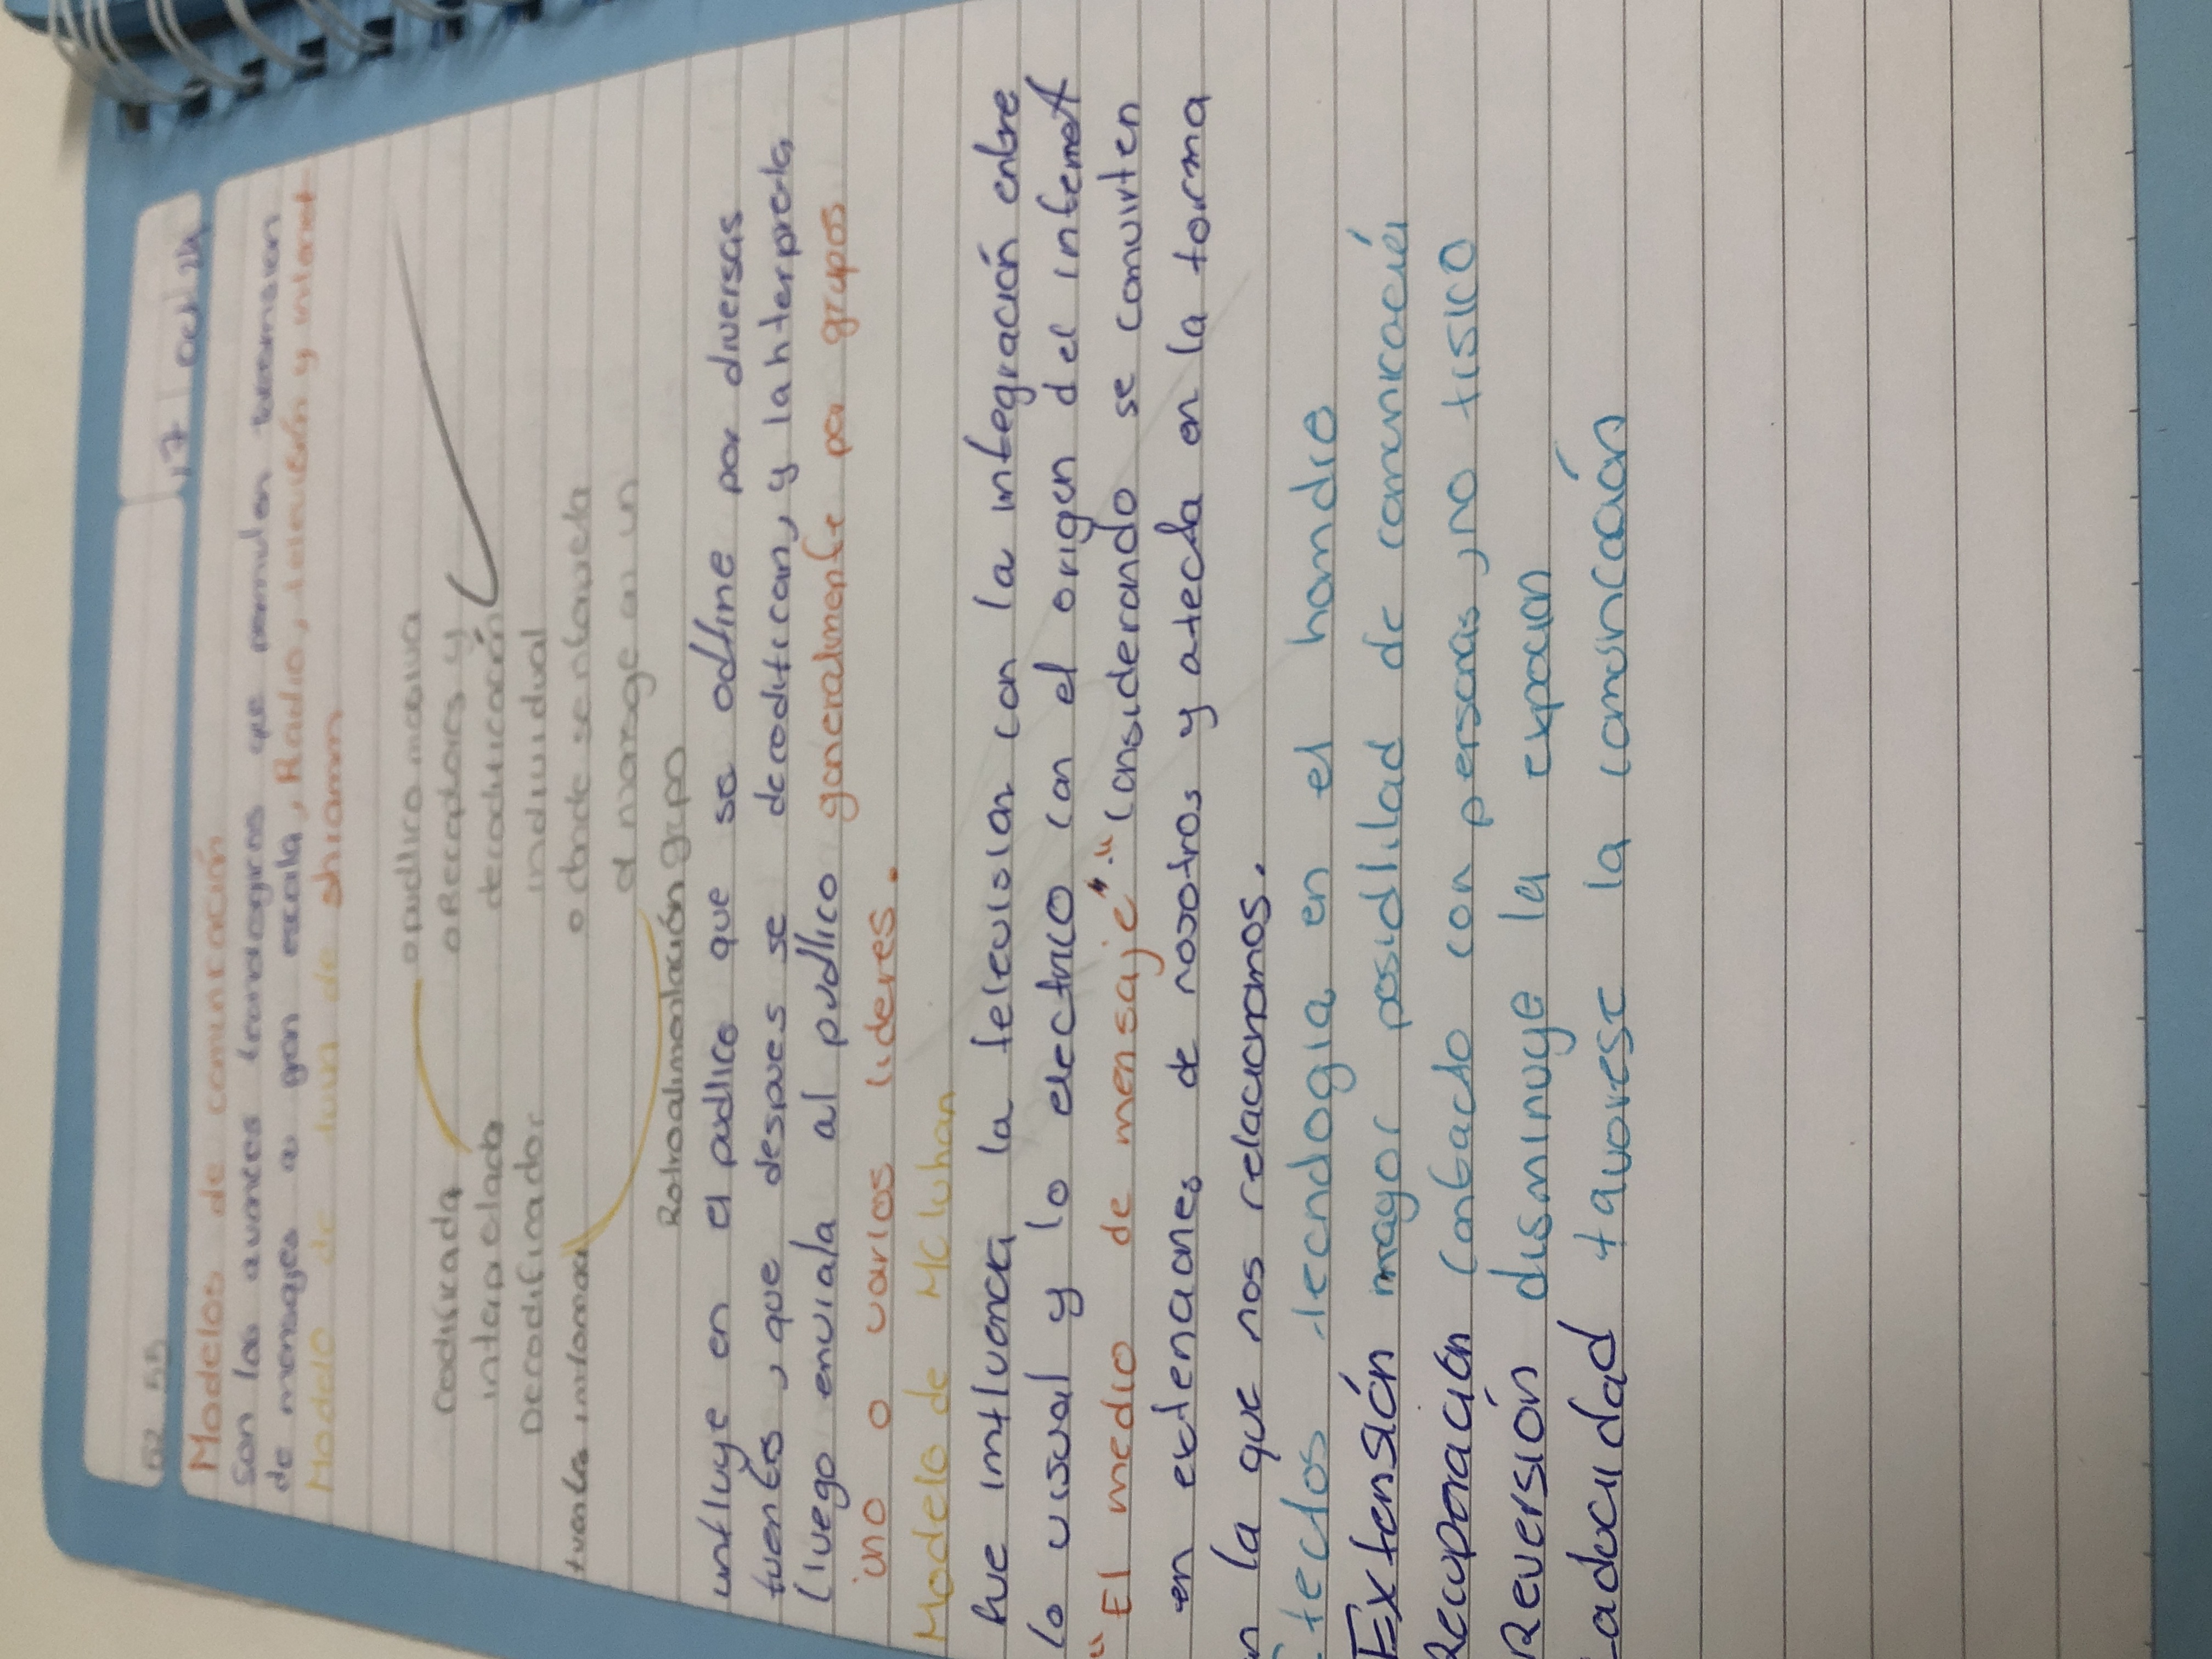 17 oct 24
Modelos de comunicación
Son los avances tecnologicos que permiten transmision
de mensajes a gran escala, Radio, television y internet
Modelo de de shramm
Codificada
interpretada
Decodificador
fuente informa
o publico masiva
o Receptores y
decodificación
individual
o donde se interpreta
el mensaje en un
grupo
Retroalimentación
influye en el publico que se define por diversas
fuentes, que despues se decodifican, y la hterpreta,
(luego enviala al publico generalmente por grupos
uno o varios lideres.
Modelo de MC luhan
fue influencia la television con la integración entre
lo visual y lo electrico con el origen del internet
"El medio de mensaje". Considerando se convirten
en extenciones de nosotros y afecta en la forma
en la que nos relacionamos.
tecnologia en el hombre
Extensión mayor posiblilad de comunicació
Recuperación contacto con personas, no fisico
Reversión disminuye la expocion
aducidad favorese la comonicación